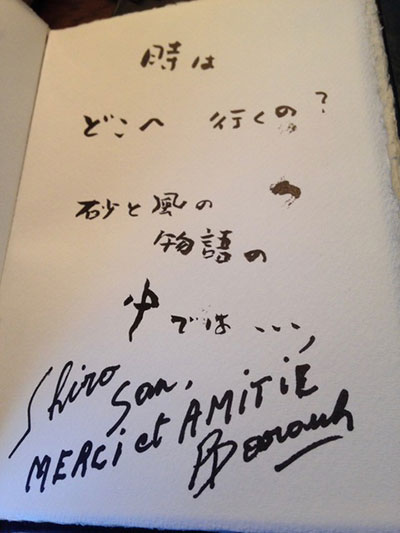 時は
どこへ 行くの?
砂と風の
物語の
中では...,
Shiro
San,
MERCI et AMITIÉ